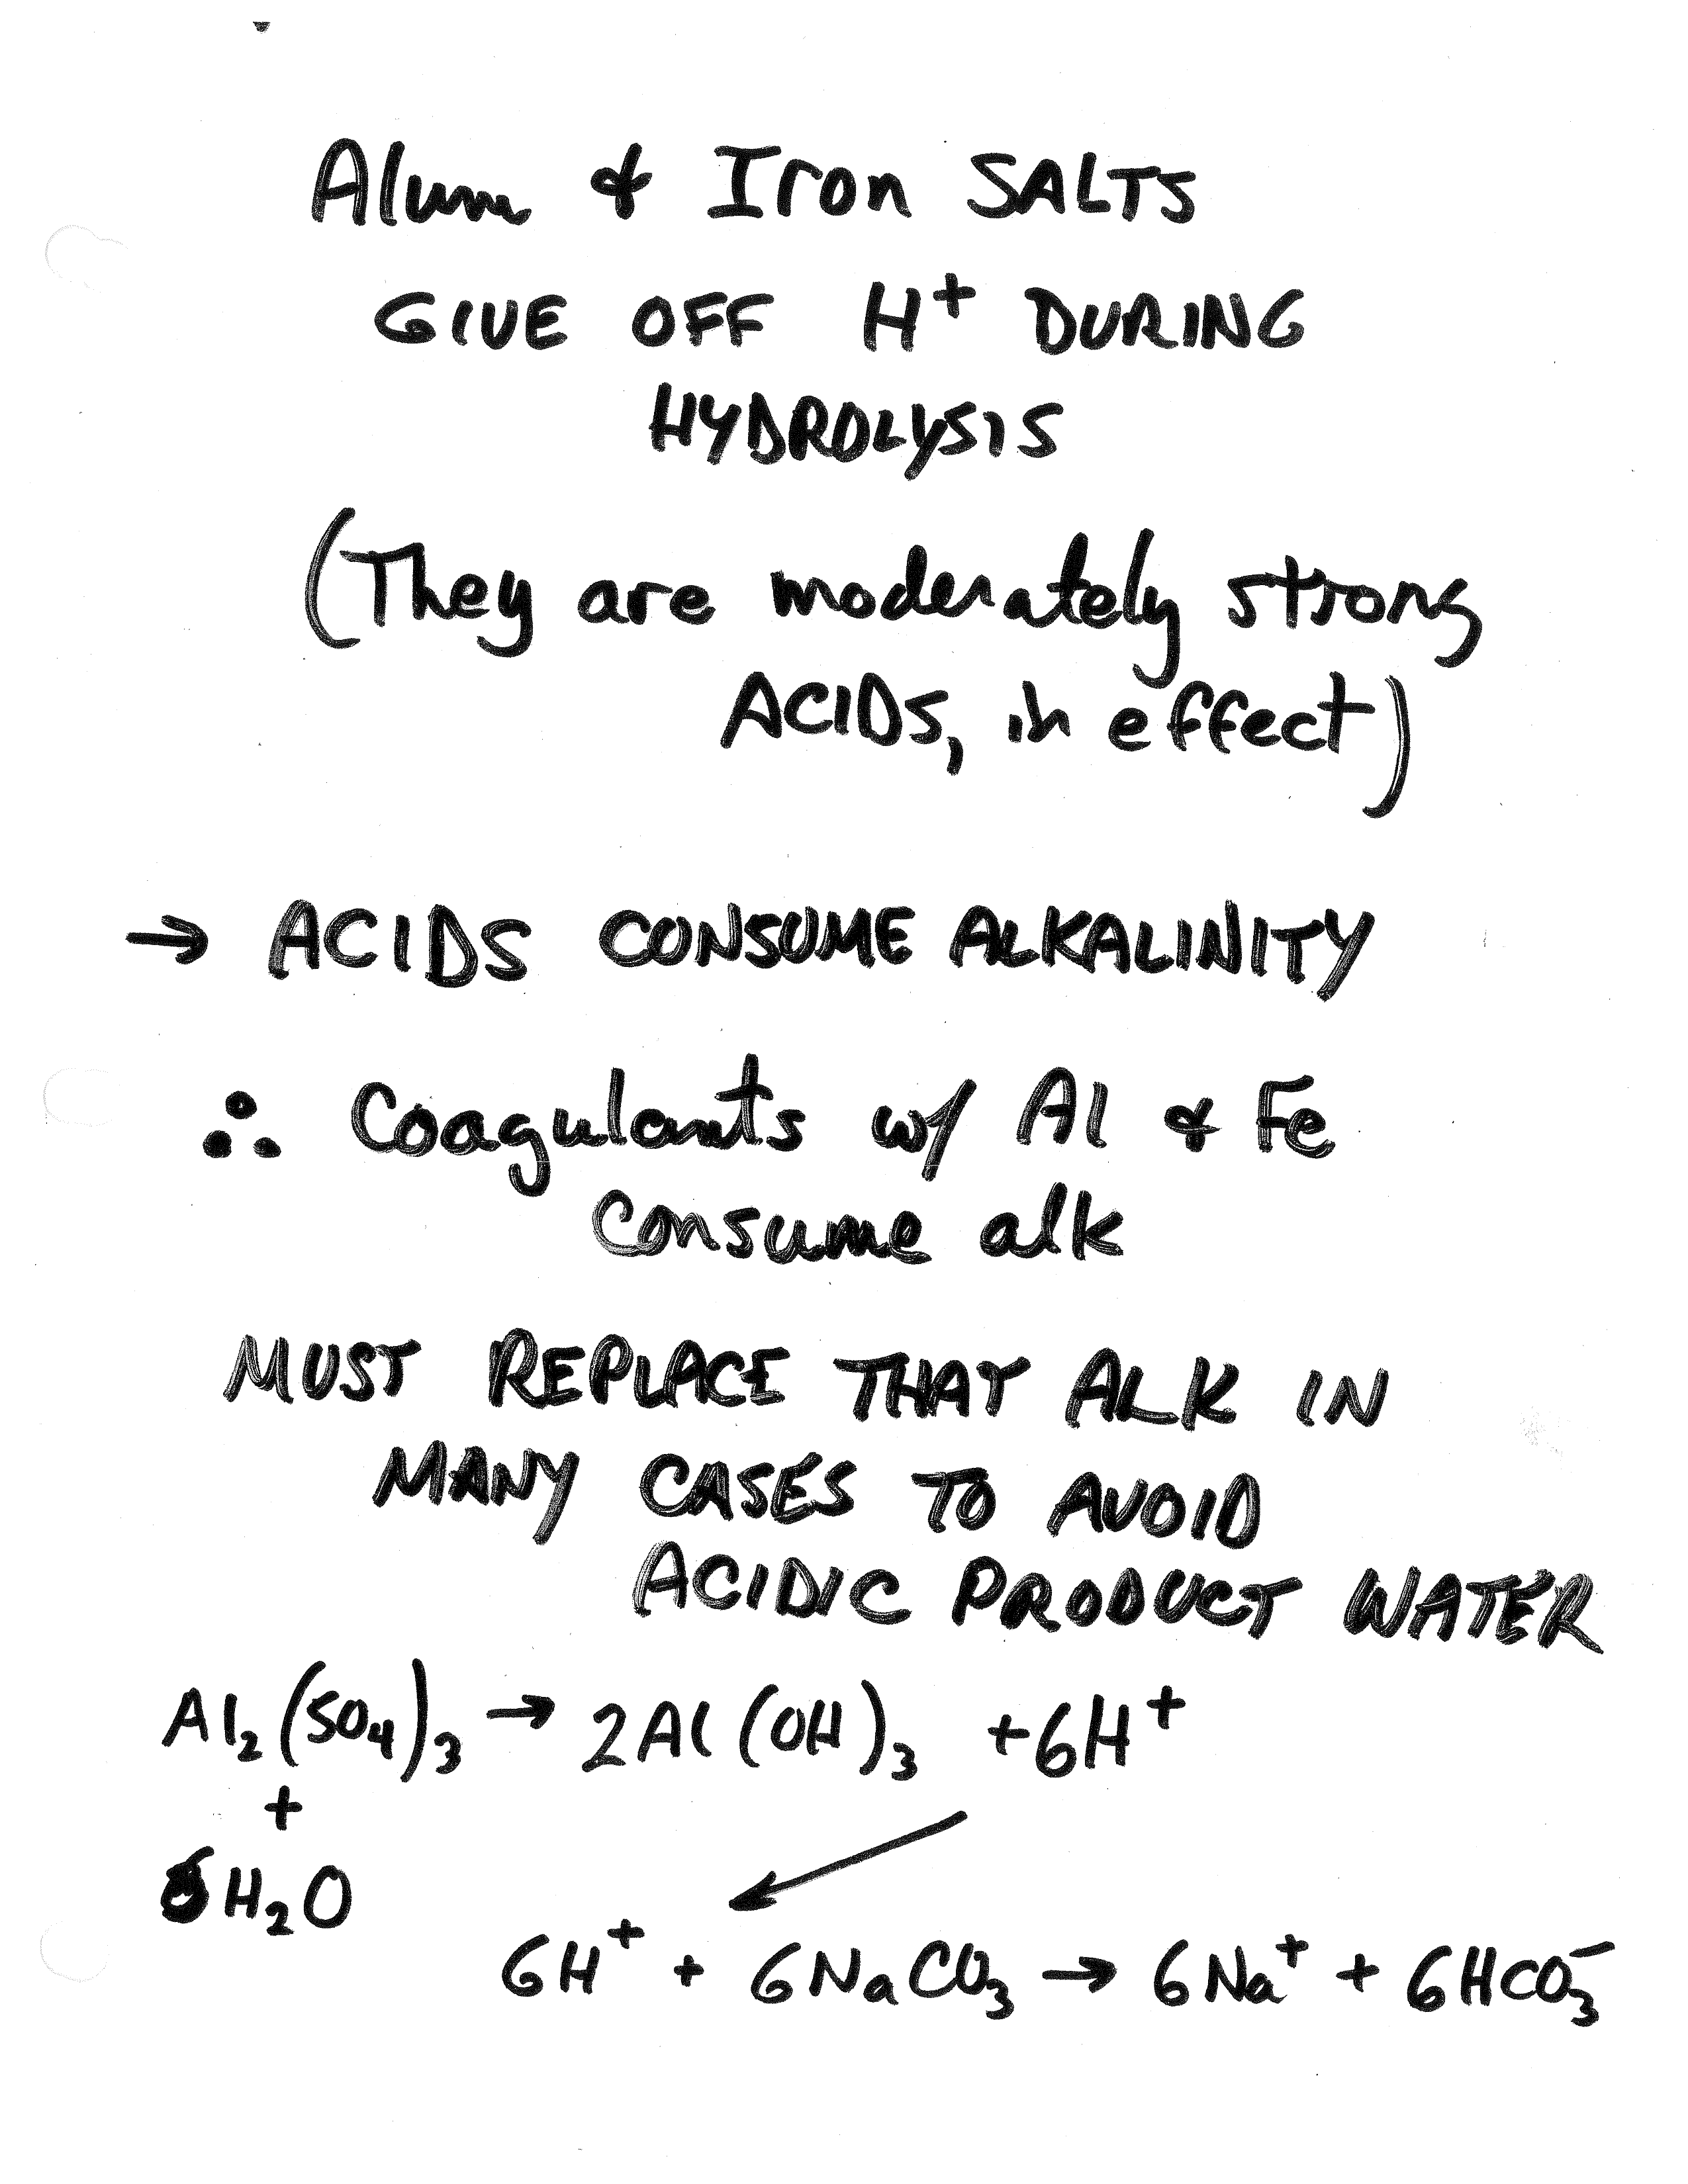 Alum & Iron SALTS
GIVE OFF H⁺ DURING
HYDROLYSIS
(They are moderately strong
ACIDS, in effect)
→ ACIDS CONSUME ALKALINITY
∴ Coagulants w/ Al & Fe
consume alk
MUST REPLACE THAT ALK IN
MANY CASES TO AVOID
ACIDIC PRODUCT WATER
Al₂(SO₄)₃ → 2Al(OH)₃ +6H⁺
+
6H₂O
6H⁺ + 6NaCO₃ → 6Na⁺ + 6HCO₃⁻